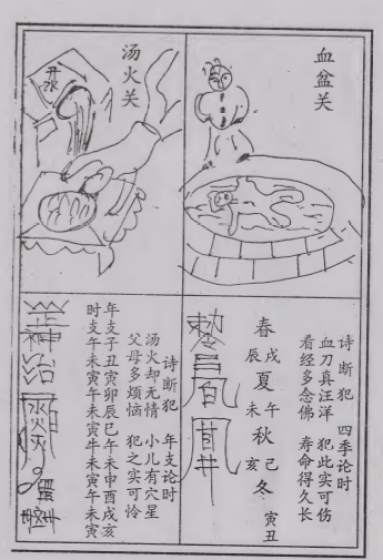 血盆关
诗断犯 四季论时
血刀真汪洋 犯此实可伤
看经多念佛 寿命得久长
春 戌辰 夏 午未 秋 己亥 冬 寅丑
汤火关
开水
诗断犯 年支论时
汤火却无情 小儿有穴星
父母多烦恼 犯之实可怜
年支子丑寅卯辰巳午未申酉戌亥
时支午未寅午未寅牛未寅午未寅